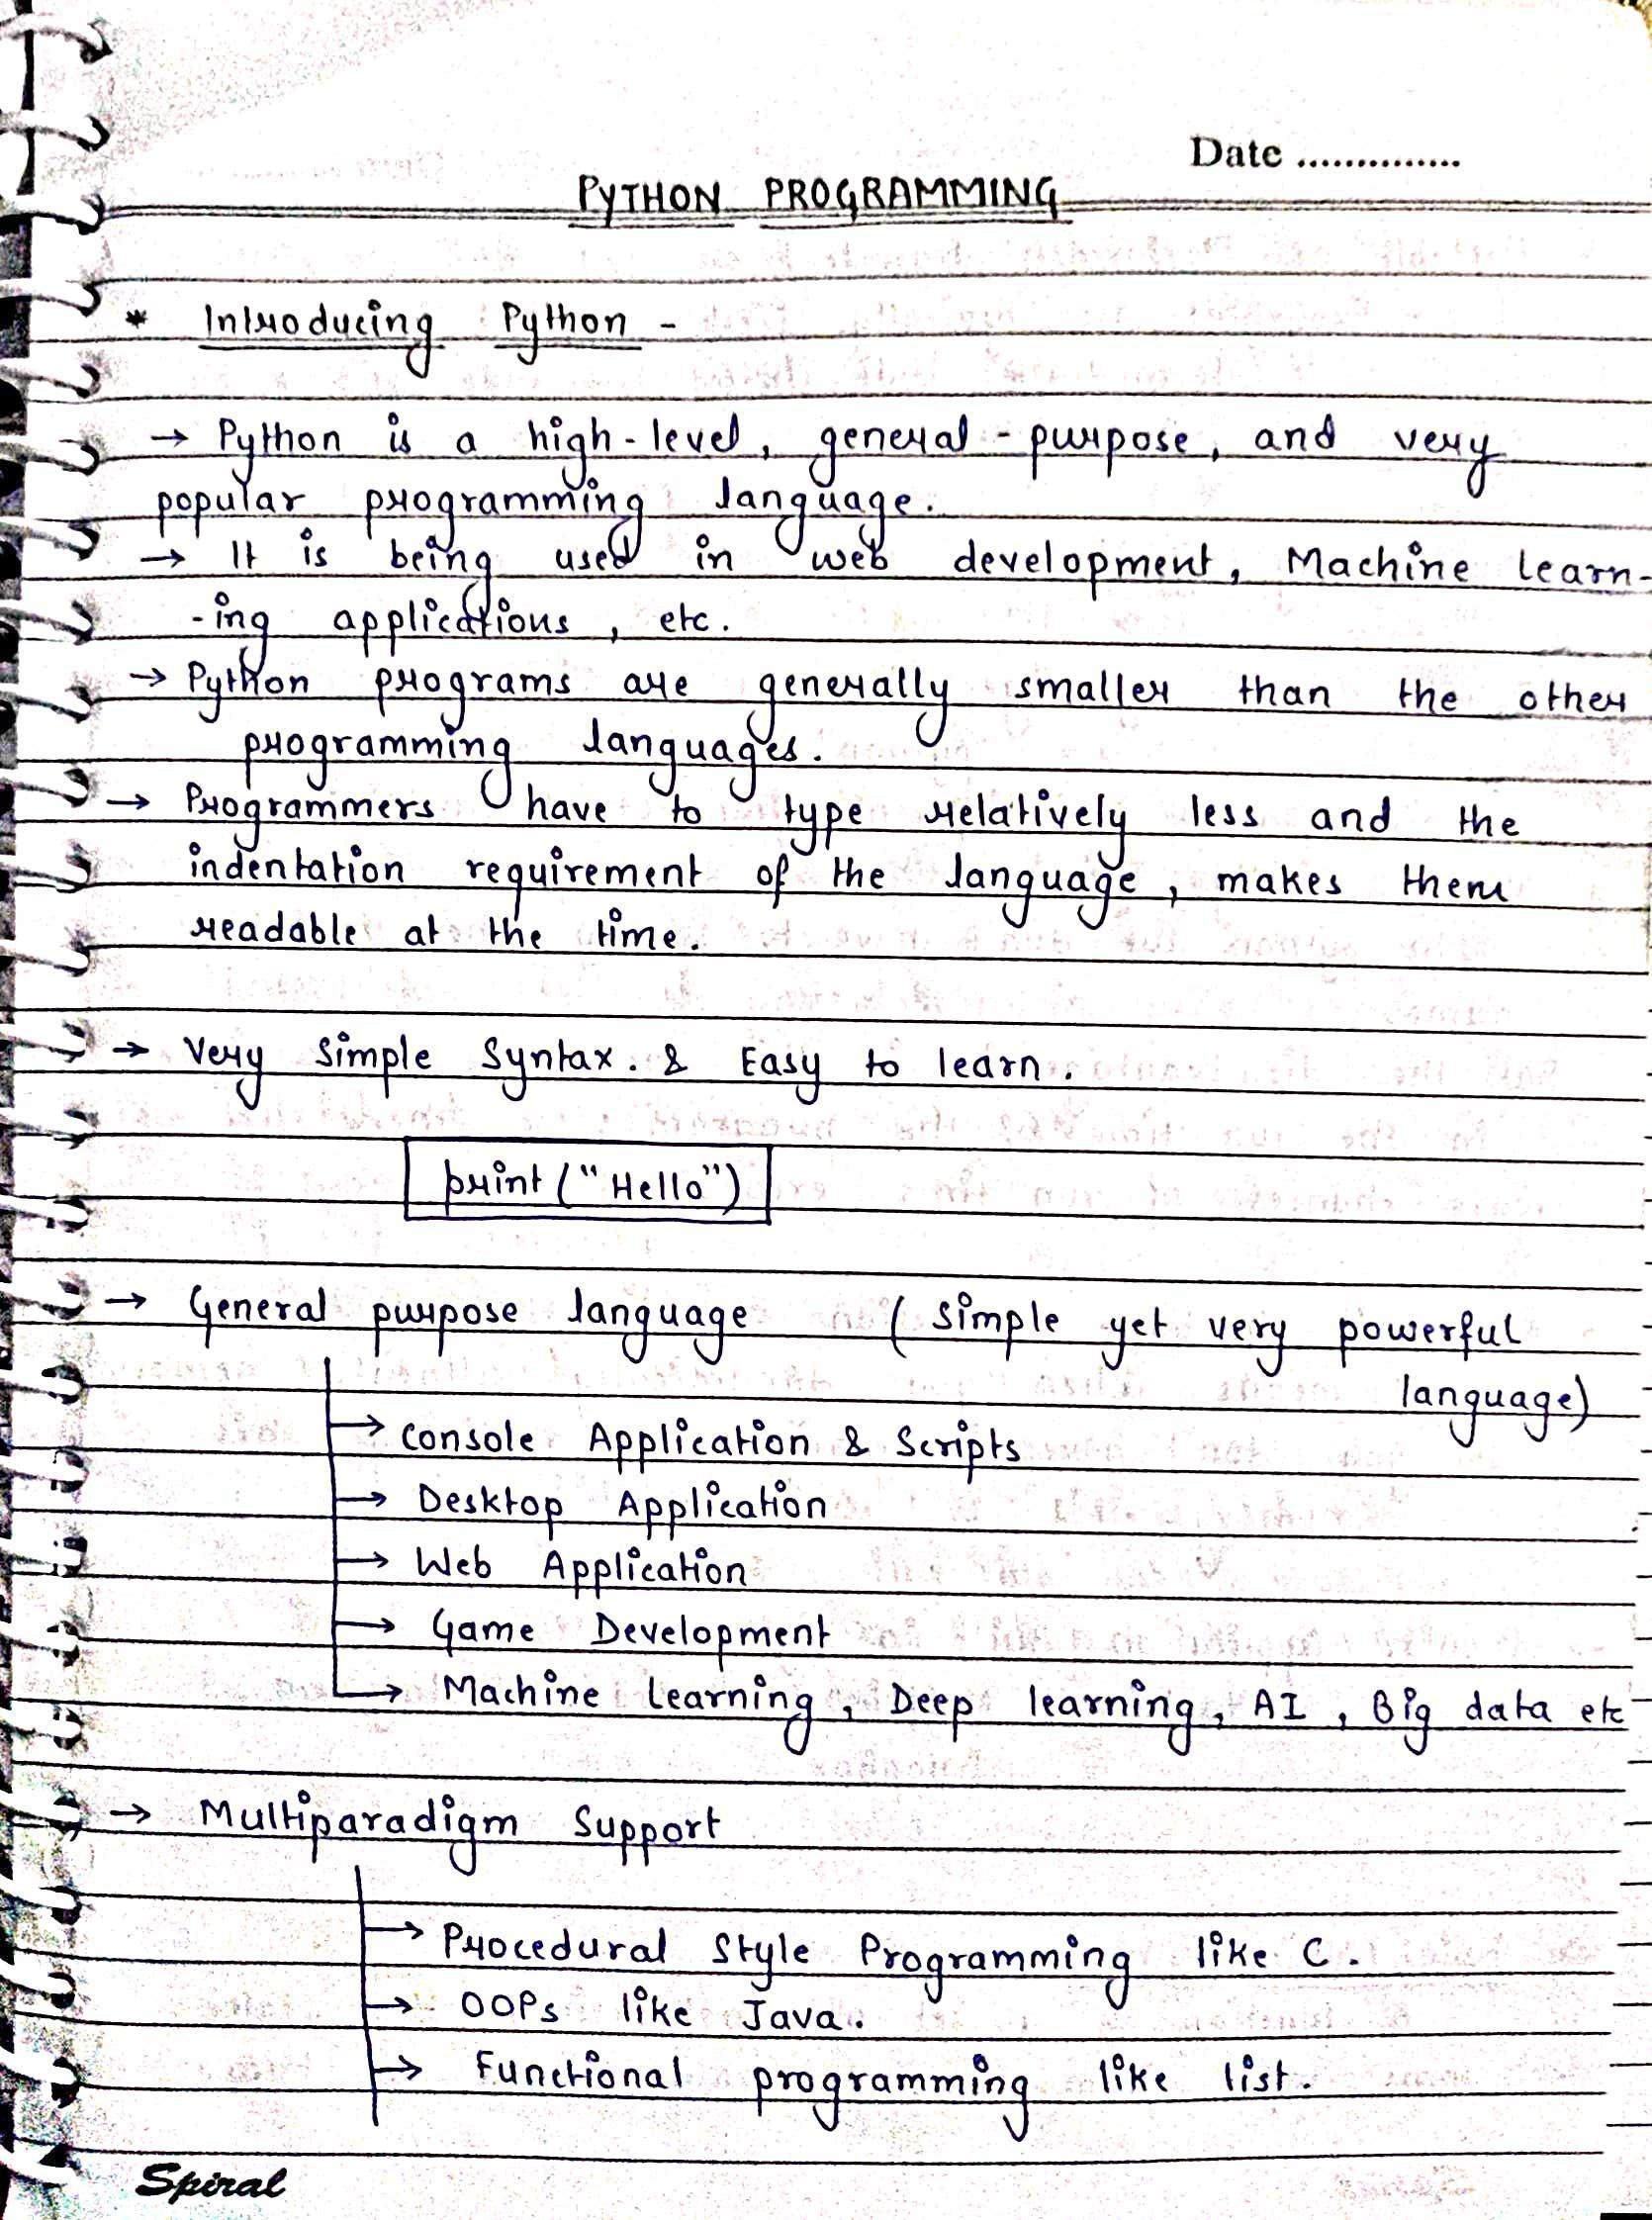 Date ..............
PYTHON PROGRAMMING
* Introducing Python -
→ Python is a high-level, general-purpose, and very
popular programming language.
→ It is being used in web development, Machine learn-
-ing applications, etc.
→ Python programs are generally smaller than the other
programming languages.
→ Programmers have to type relatively less and the
indentation requirement of the language, makes them
readable at the time.
→ Very simple syntax. & Easy to learn.
print ("Hello")
→ General purpose language (simple yet very powerful
language)
→ Console Application & Scripts
→ Desktop Application
→ Web Application
→ Game Development
→ Machine Learning, Deep learning, AI, Big data etc
→ Multiparadigm Support
→ Procedural Style Programming like C.
→ OOPs like Java.
→ Functional programming like list.
Spiral